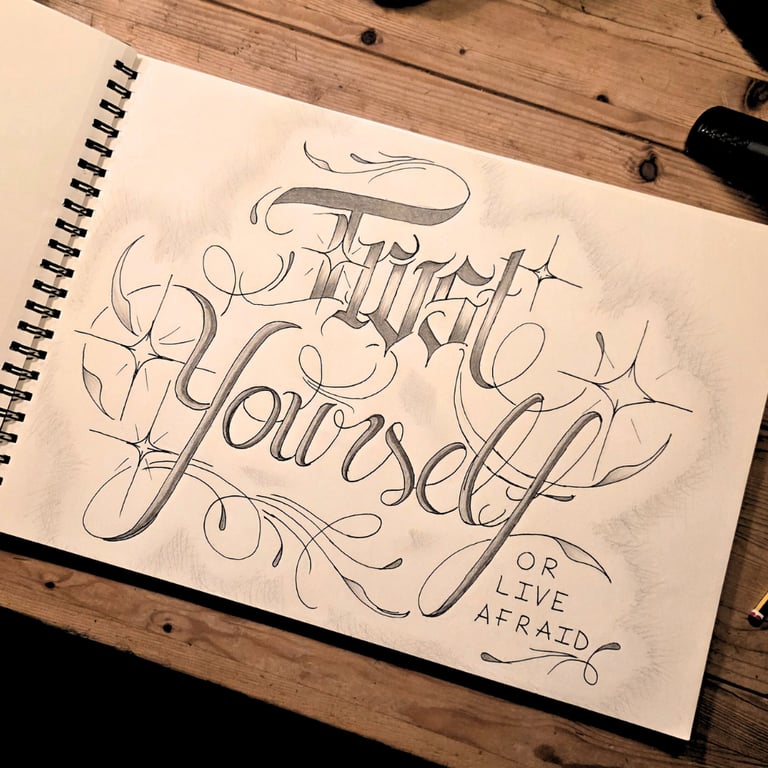 Trust
Yourself
OR
LIVE
AFRAID